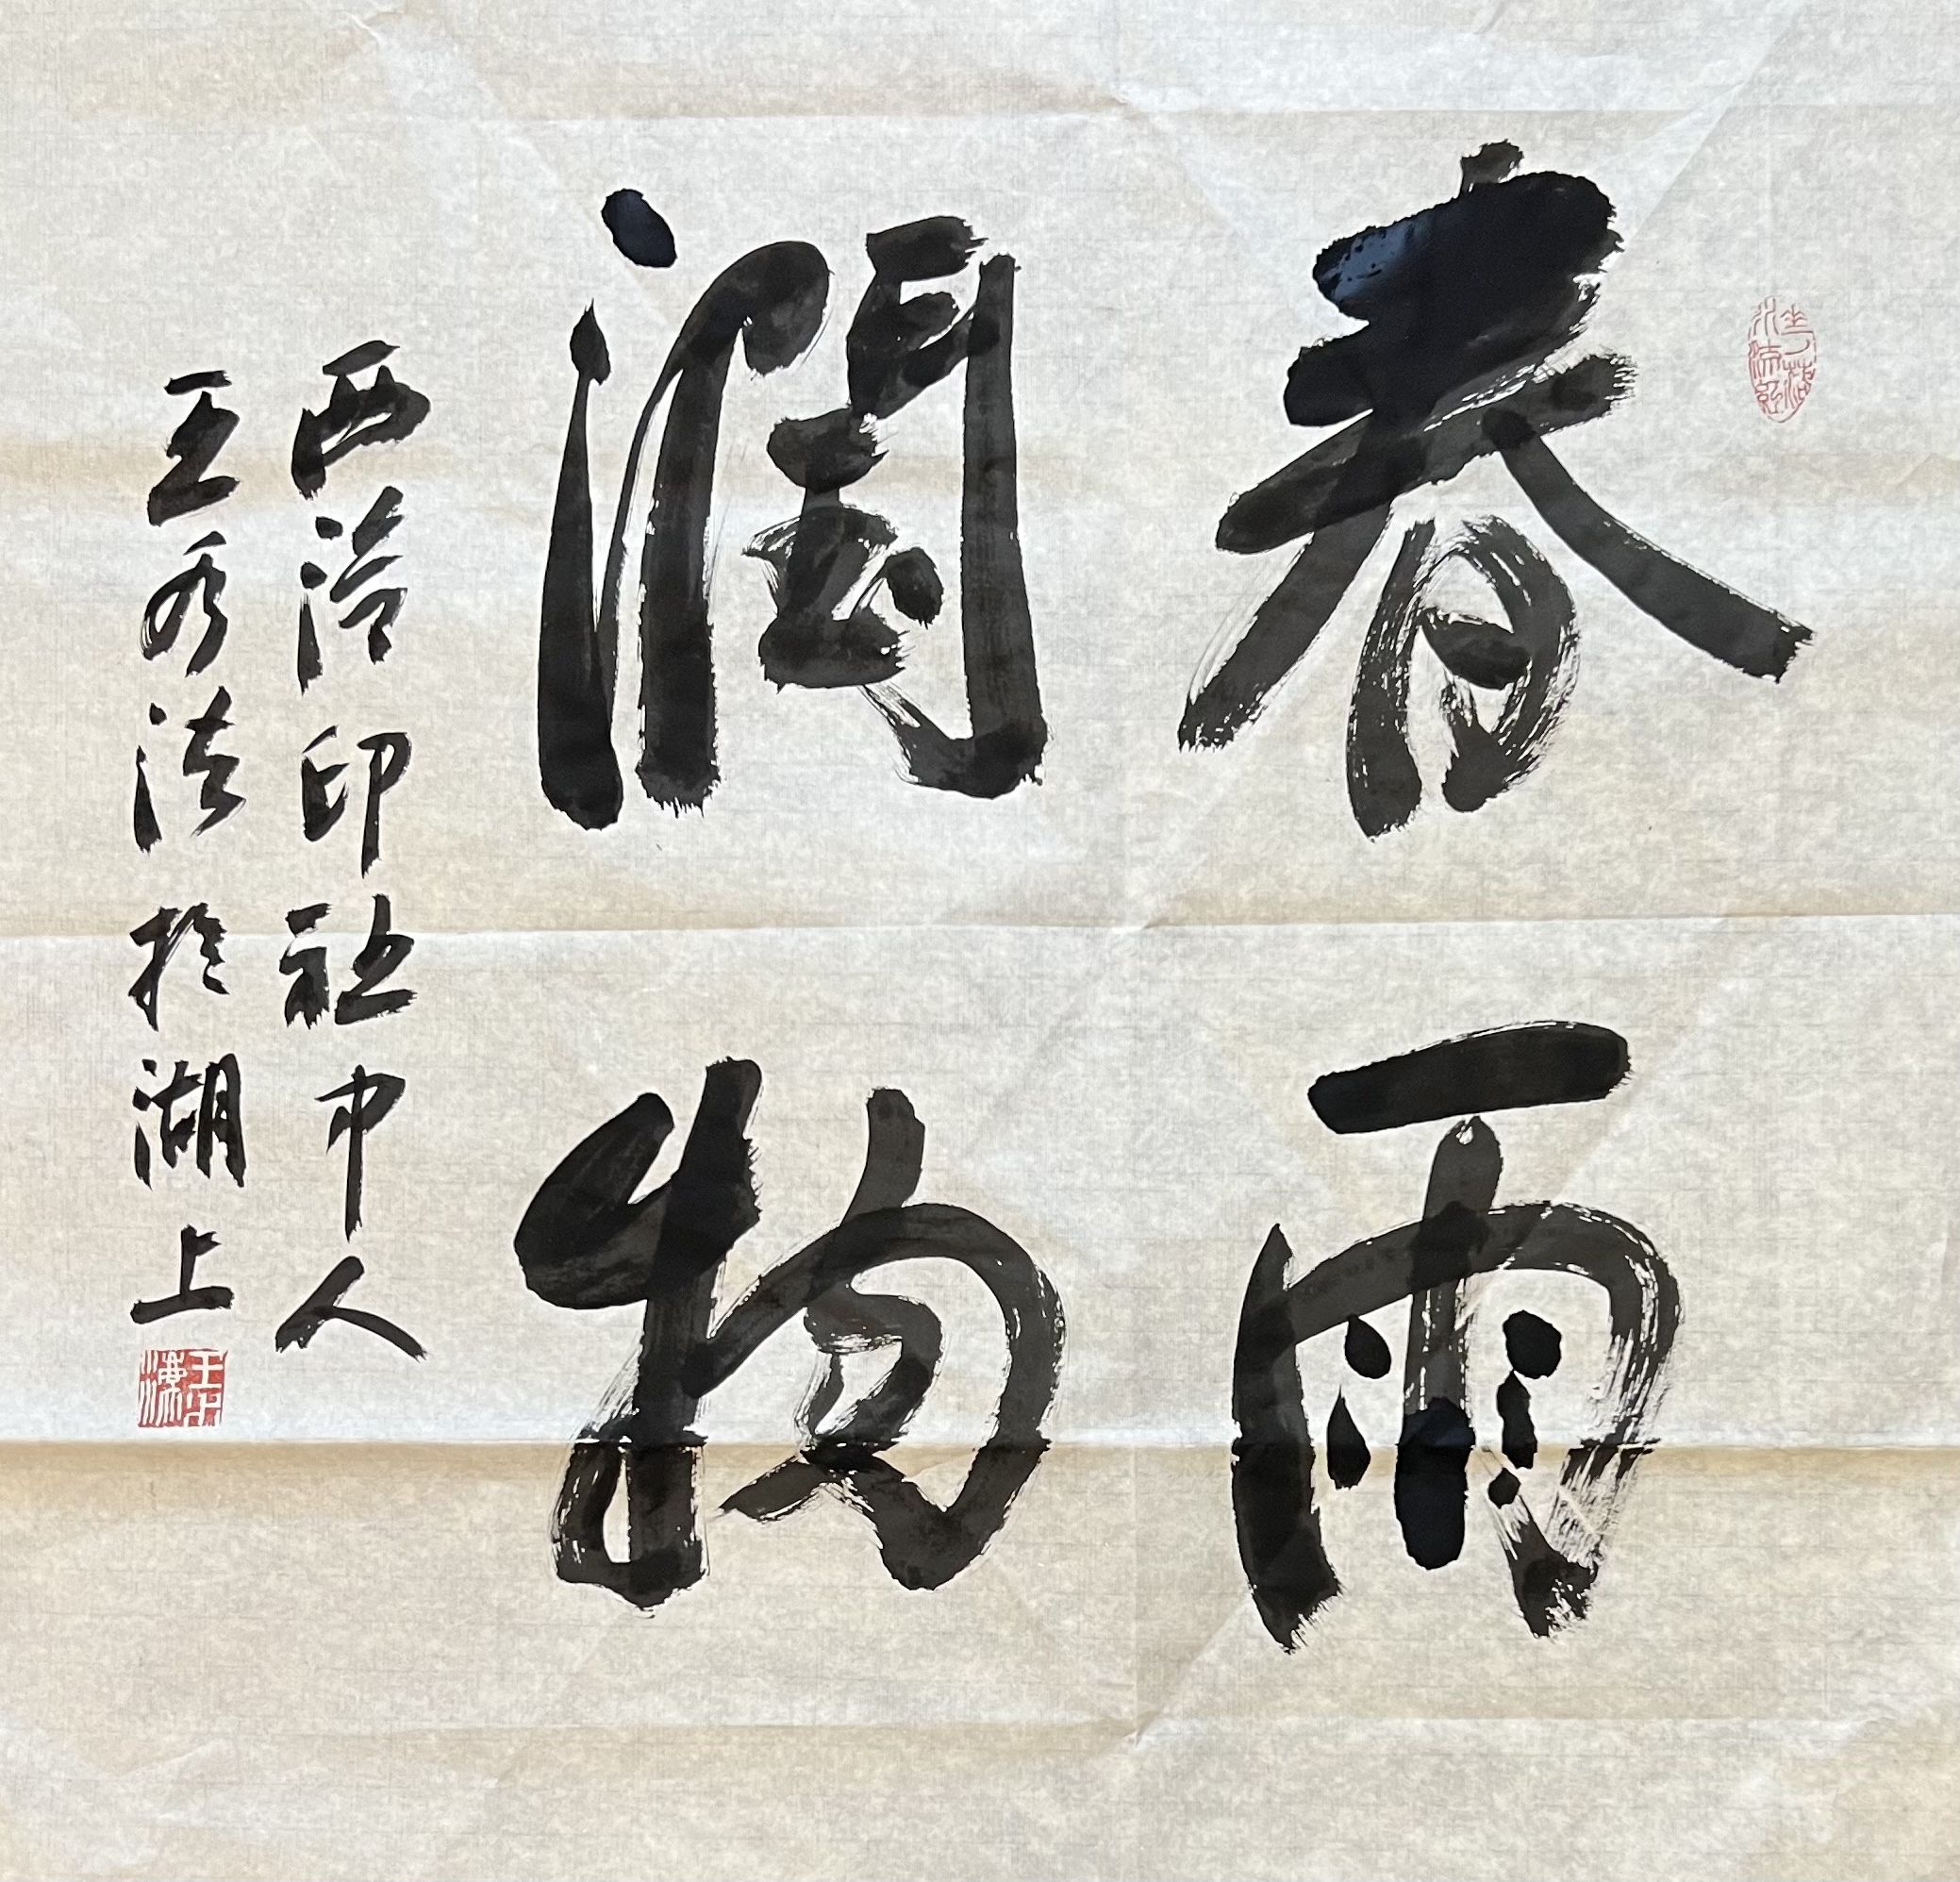 春雨
潤物
西泠印社中人
王秀法於湖上